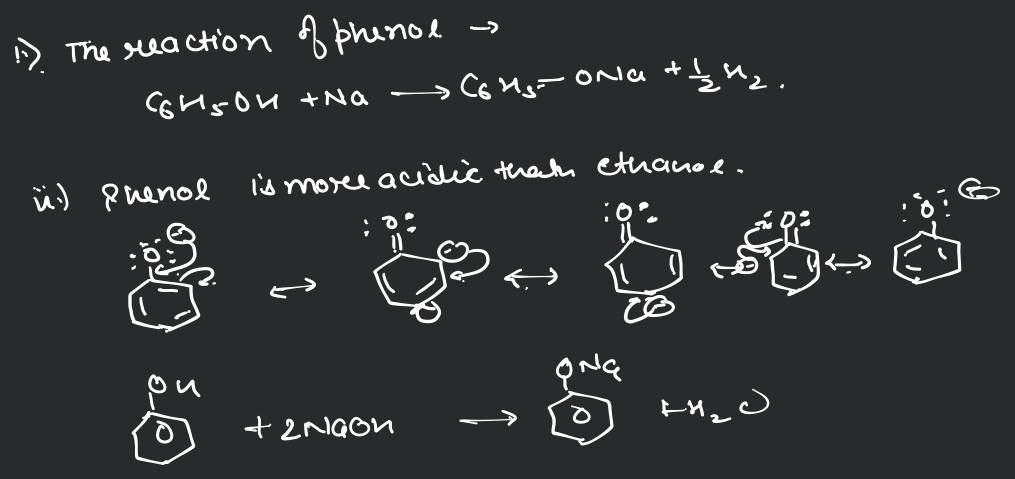 i.) The reaction of phenol →
C6H5OH + Na → C6H5-ONa + 1/2 H2.
ii.) Phenol is more acidic than ethanol.
:Ö: ⊖ ↔ :O: ⊖ ↔ :O: ⊖ ↔ :O: ⊖ ↔ :Ö: ⊖
OH + 2NaOH → ONa + H2O